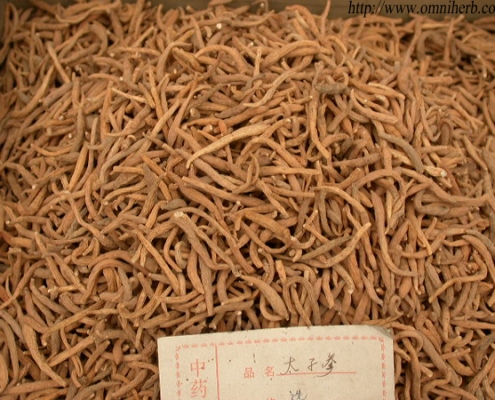 http://www.omniherb.co
中药
品名 太子参
选